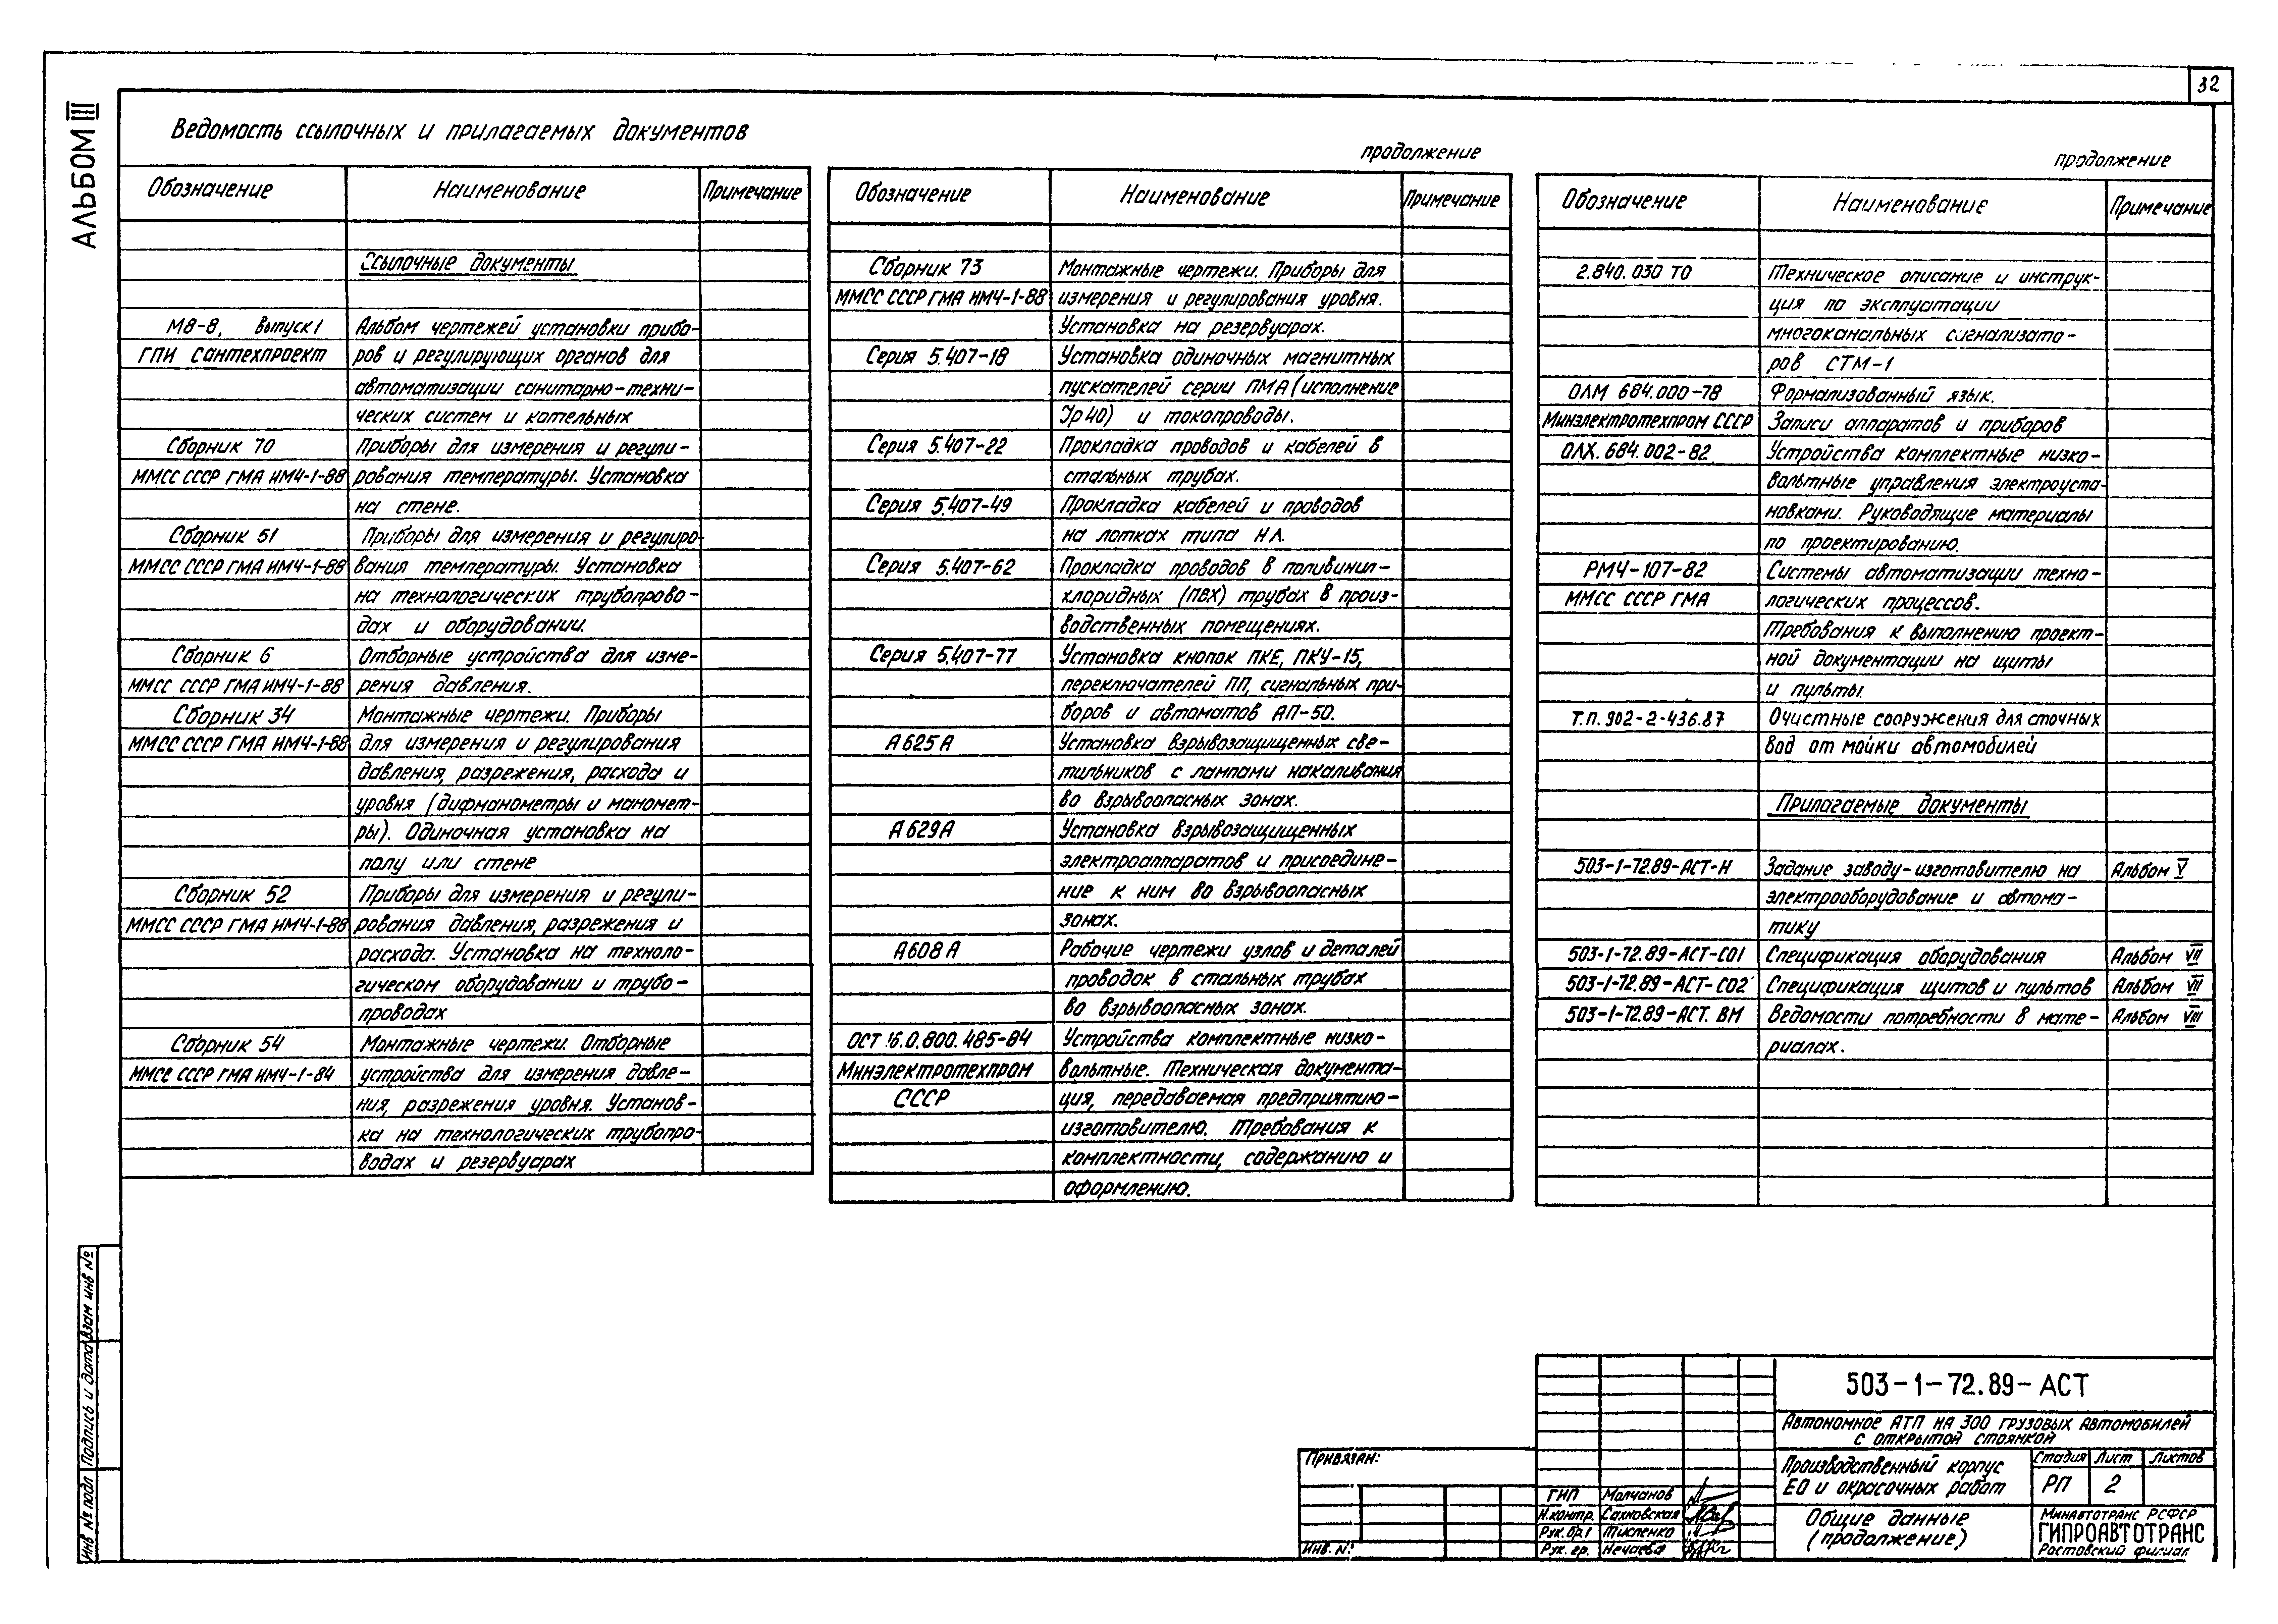 32
АЛЬБОМ III
Ведомость ссылочных и прилагаемых документов
Обозначение Наименование Примечание
Ссылочные документы
М8-8, выпуск 1 Альбом чертежей установки прибо-
ГПИ Сантехпроект ров и регулирующих органов для
автоматизации санитарно-техни-
ческих систем и котельных
Сборник 70 Приборы для измерения и регули-
ММСС СССР ГМА ИМ4-1-88 рования температуры. Установка
на стене.
Сборник 51 Приборы для измерения и регулиро-
ММСС СССР ГМА ИМ4-1-88 вания температуры. Установка
на технологических трубопрово-
дах и оборудовании.
Сборник 6 Отборные устройства для изме-
ММСС СССР ГМА ИМ4-1-88 рения давления.
Сборник 34 Монтажные чертежи. Приборы
ММСС СССР ГМА ИМ4-1-88 для измерения и регулирования
давления, разрежения, расхода и
уровня (дифманометры и маномет-
ры). Одиночная установка на
полу или стене
Сборник 52 Приборы для измерения и регули-
ММСС СССР ГМА ИМ4-1-88 рования давления, разрежения и
расхода. Установка на техноло-
гическом оборудовании и трубо-
проводах
Сборник 54 Монтажные чертежи. Отборные
ММСС СССР ГМА ИМ4-1-84 устройства для измерения давле-
ния, разрежения уровня. Установ-
ка на технологических трубопро-
водах и резервуарах
продолжение
Обозначение Наименование Примечание
Сборник 73 Монтажные чертежи. Приборы для
ММСС СССР ГМА ИМ4-1-88 измерения и регулирования уровня.
Установка на резервуарах.
Серия 5.407-18 Установка одиночных магнитных
пускателей серии ПМА (исполнение
Ур40) и токопроводы.
Серия 5.407-22 Прокладка проводов и кабелей в
стальных трубах.
Серия 5.407-49 Прокладка кабелей и проводов
на лотках типа НЛ.
Серия 5.407-62 Прокладка проводов в поливинил-
хлоридных (ПВХ) трубах в произ-
водственных помещениях.
Серия 5.407-77 Установка кнопок ПКЕ, ПКУ-15,
переключателей ПП, сигнальных при-
боров и автоматов АП-50.
А625А Установка взрывозащищенных све-
тильников с лампами накаливания
во взрывоопасных зонах.
А629А Установка взрывозащищенных
электроаппаратов и присоедине-
ние к ним во взрывоопасных
зонах.
А608А Рабочие чертежи узлов и деталей
проводок в стальных трубах
во взрывоопасных зонах.
ОСТ 16.0.800.485-84 Устройства комплектные низко-
Минэлектротехпром вольтные. Техническая документа-
СССР ция, передаваемая предприятию-
изготовителю. Требования к
комплектности, содержанию и
оформлению.
продолжение
Обозначение Наименование Примечание
2.840.030 ТО Техническое описание и инструк-
ция по эксплуатации
многоканальных сигнализато-
ров СТМ-1
ОЛМ 684.000-78 Формализованный язык.
Минэлектротехпром СССР Записи аппаратов и приборов
ОЛХ.684.002-82 Устройства комплектные низко-
вольтные управления электроуста-
новками. Руководящие материалы
по проектированию.
РМ4-107-82 Системы автоматизации техно-
ММСС СССР ГМА логических процессов.
Требования к выполнению проект-
ной документации на щиты
и пульты.
Т.П. 902-2-436.87 Очистные сооружения для сточных
вод от мойки автомобилей
Прилагаемые документы
503-1-72.89-АСТ-Н Задание заводу-изготовителю на Альбом V
электрооборудование и автома-
тику
503-1-72.89-АСТ-СО1 Спецификация оборудования Альбом VII
503-1-72.89-АСТ-СО2 Спецификация щитов и пультов Альбом VII
503-1-72.89-АСТ.ВМ Ведомости потребности в мате- Альбом VIII
риалах.
Взам инв №
Подпись и дата
Инв № подл
Привязан:
Инв. №
503-1-72.89-АСТ
Автономное АТП на 300 грузовых автомобилей
с открытой стоянкой
Производственный корпус
ЕО и окрасочных работ
Стадия Лист Листов
РП 2
ГИП Молчанов
Н.контр. Сахновская
Рук. бр. Тисленко
Рук. гр. Нечаева
Общие данные
(продолжение)
Минавтотранс РСФСР
ГИПРОАВТОТРАНС
Ростовский филиал